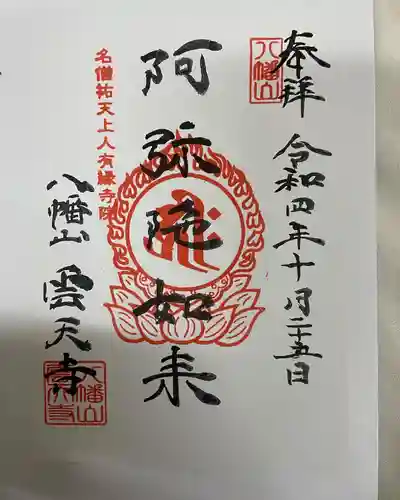 奉拝
令和四年十月二十五日
八幡山
阿弥陀如来
名僧祐天上人有縁寺院
八幡山
雲天寺
八幡山
雲天寺